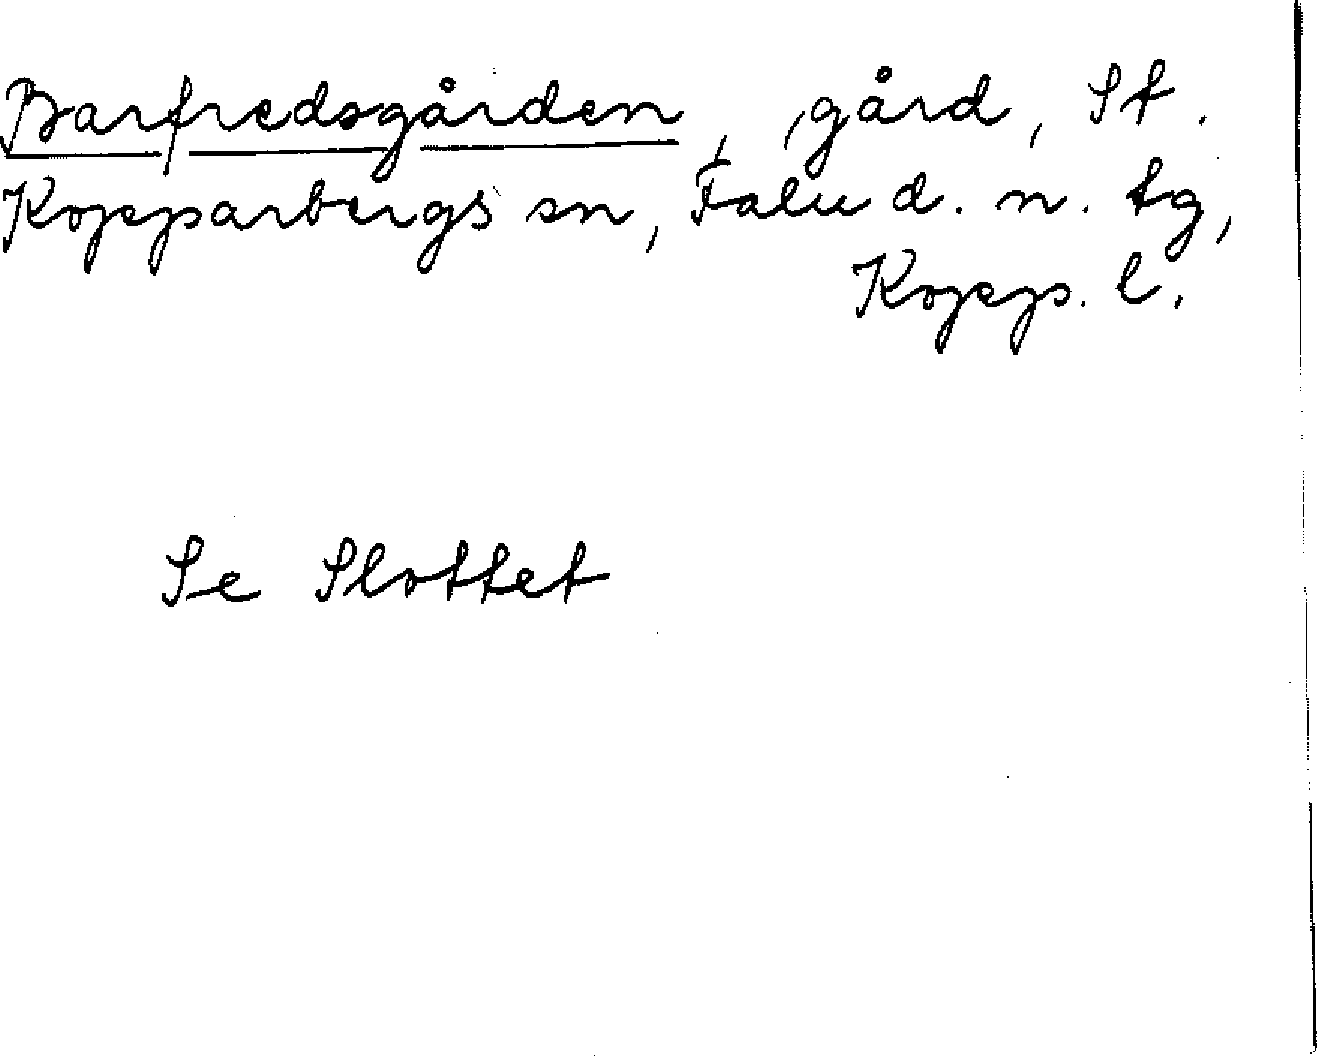 Barfredsgården, gård, St.
Kopparbergs sn, Falu d. n. tg,
Kopp. l.
Se Slottet